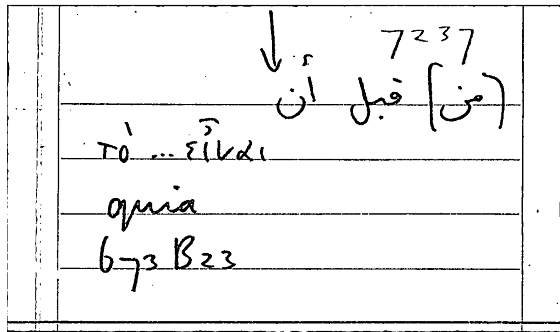 7237
(من) قبل أن
τὸ ... εἶναι
quia
673 B23